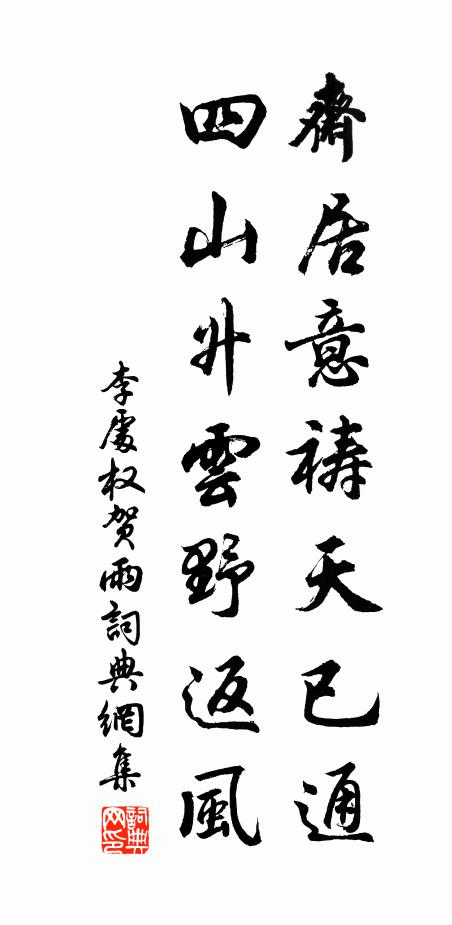 齋居意禱天已通
四山升雲野返風
李處权贺雨詞典網集
詞典网印